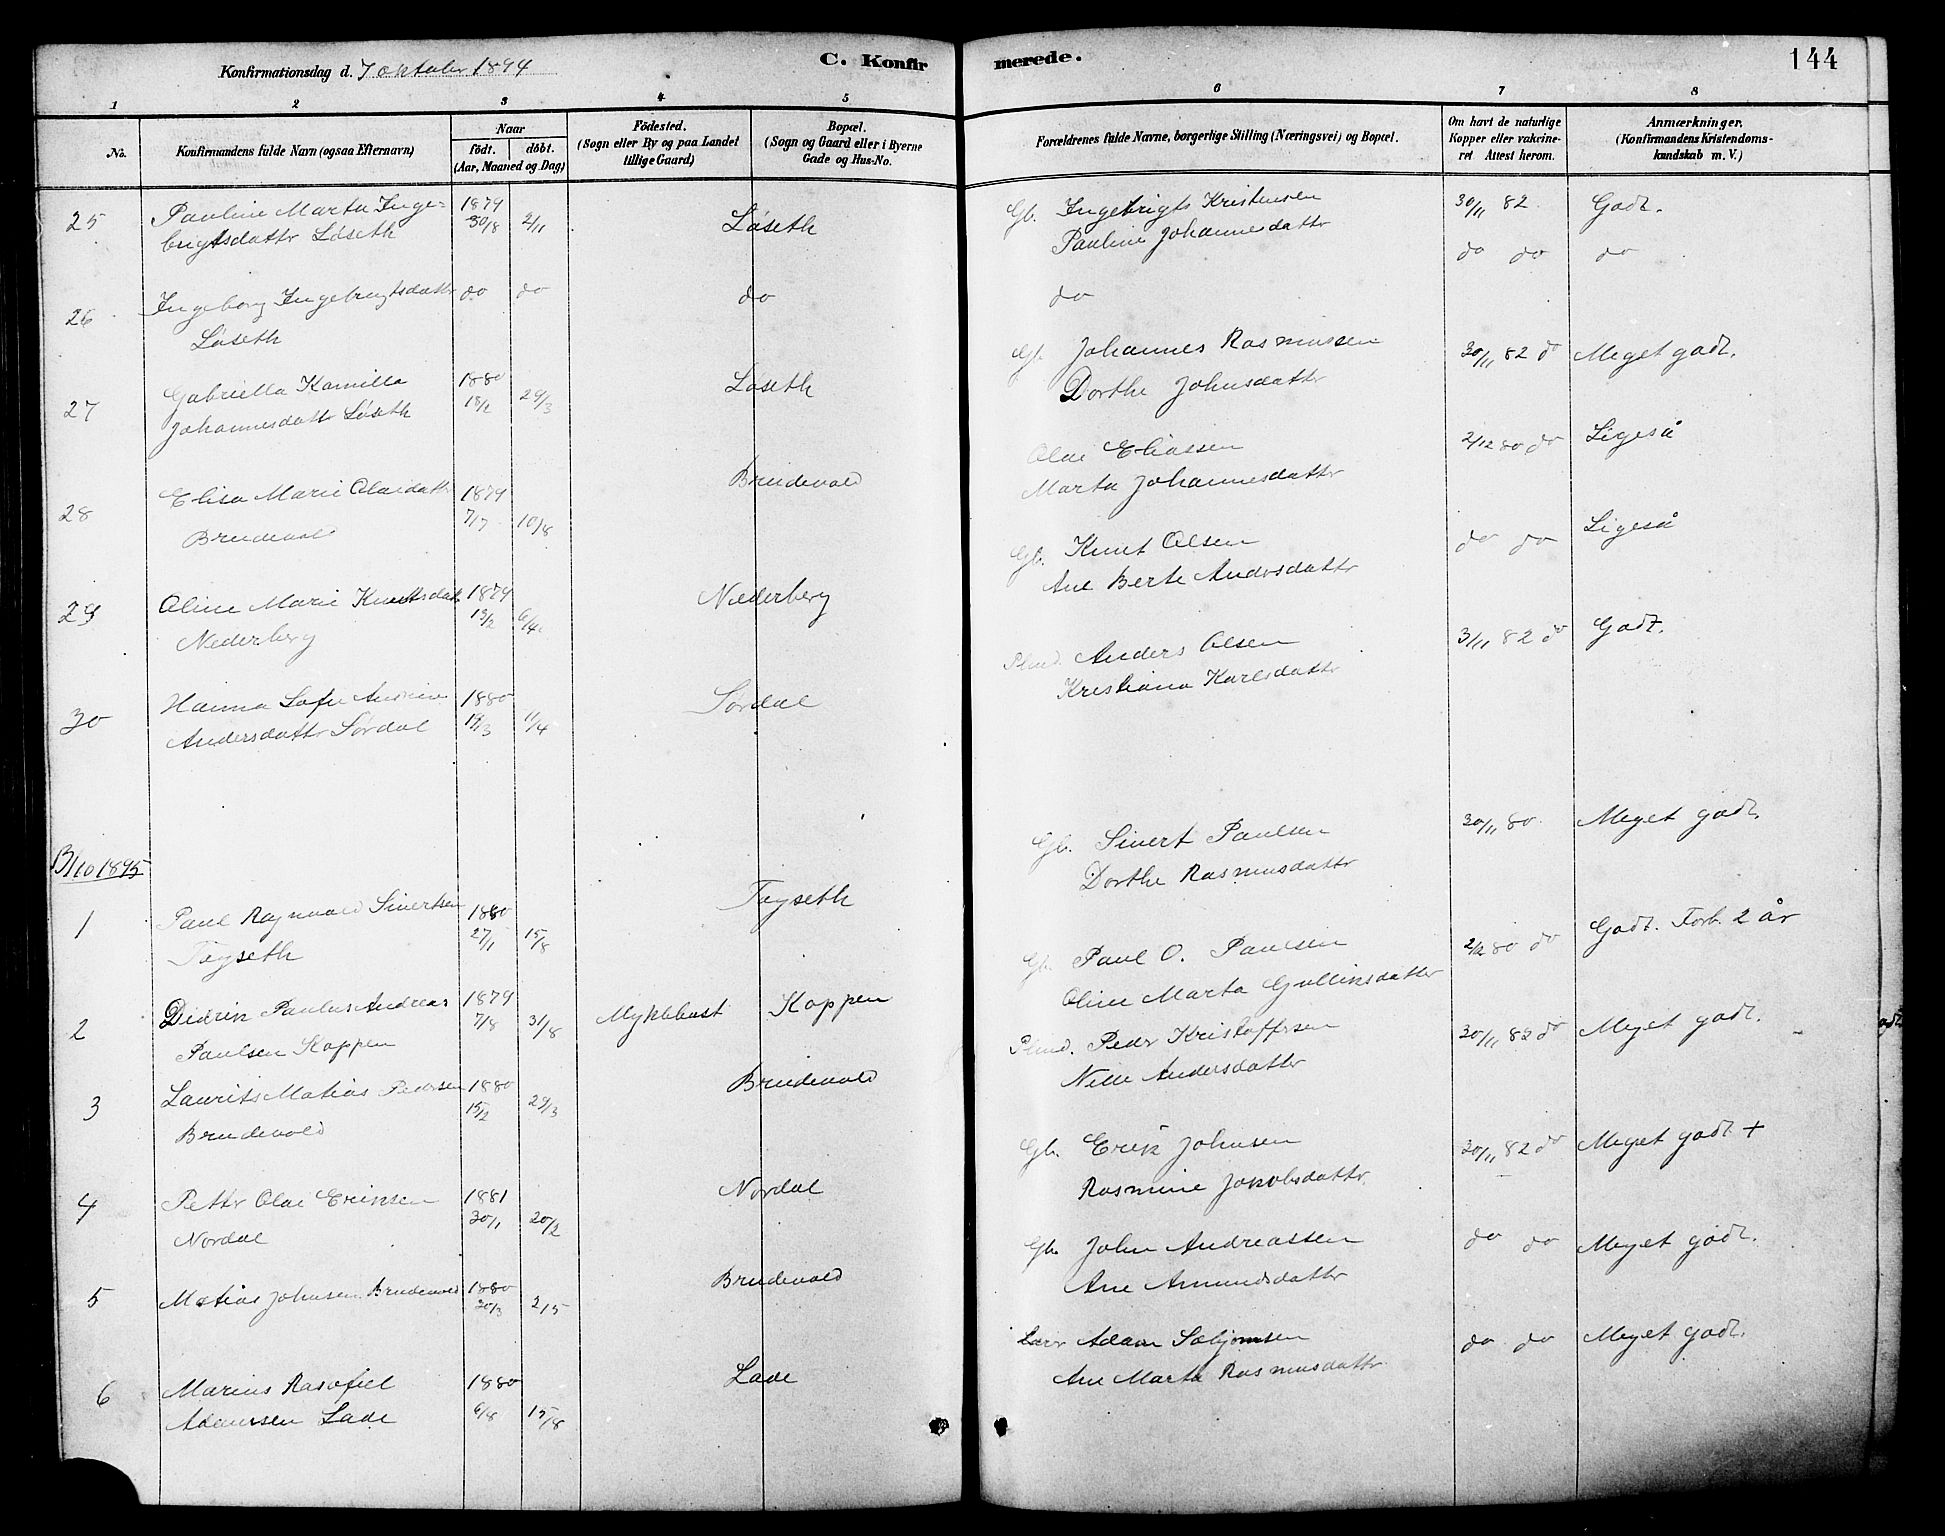 Konfirmationsdag d. 7 oktober 1894
C. Konfirmerede.
144
1 2 3 4 5 6 7 8
No.
Konfirmandens fulde Navn (ogsaa Efternavn)
Naar
födt. döbt.
(Aar, Maaned og Dag)
Födested.
(Sogn eller By og paa Landet
tillige Gaard)
Bopæl.
(Sogn og Gaard eller i Byerne
Gade og Hus-No.
Forældrenes fulde Navne, borgerlige Stilling (Næringsvei) og Bopæl.
Om havt de naturlige
Kopper eller vakcine-
ret Attest herom.
Anmærkninger.
(Konfirmandens Kristendoms-
kundskab m. V.)
25 Pauline Marta Inge- 1879 Løseth Gb. Ingebrigt Kristensen 30/11 82. Godt.
brigtsdattr Løseth 30/8 2/11 Pauline Johannesdattr do do do
26 Ingeborg Ingebrigtsdattr do do do do
Løseth
27 Gabriella Kamilla 1880 Løseth Gb. Johannes Rasmussen 30/11 82 do Meget godt.
Johannesdattr Løseth 18/2 29/3 Dorthe Johnsdattr
28 Elisa Marie Olaidattr 1879 Brudevold Olai Eliassen 2/12 80 do Ligeså
Brudevold 7/7 10/8 Marta Johannesdattr
29 Oline Marie Knutsdat 1879 Nederberg Gb. Knut Olsen do do Ligeså
Nederberg 15/2 6/4 Ane Berte Andersdattr
30 Hanna Sofie 1880 Sørdal Anders Olsen 3/11 82 do Godt.
Andersdattr Sørdal 19/3 11/4 Kristiana Karlsdattr
1895
1 Paul Ragnvald Sivertsen 1880 Tyseth Gb. Sivert Paulsen 30/11 80. Meget godt.
Tyseth 27/1 15/8 Dorthe Rasmusdattr
2 Didrik Paulus Andreas 1879 Myklebust Koppen Gb. Paul O. Paulsen 2/12 80 do Godt. Forb. 2 år
Paulsen Koppen 7/8 31/8 Oline Marta Gulliksdatter
3 Laurits Matias Pedersen 1880 Brudevold Pedr Kristoffersen 30/11 82 do Meget godt.
Brudevold 15/2 29/3 Nille Andersdatter
4 Pettr Olai Eriksen 1881 Nordal Gb. Erik Johnsen 30/11 82 do Meget godt +
Nordal 30/1 20/2 Rasmine Jakobsdattr.
5 Matias Johnsen Brudevold 1880 Brudevold Gb. John Andreassen do do Meget godt.
20/3 2/5 Ane Amundsdattr
6 Marius 1880 Lade Adam do do Meget godt.
Adamsen Lade 6/8 15/8 Ane Marta Rasmusdattr.